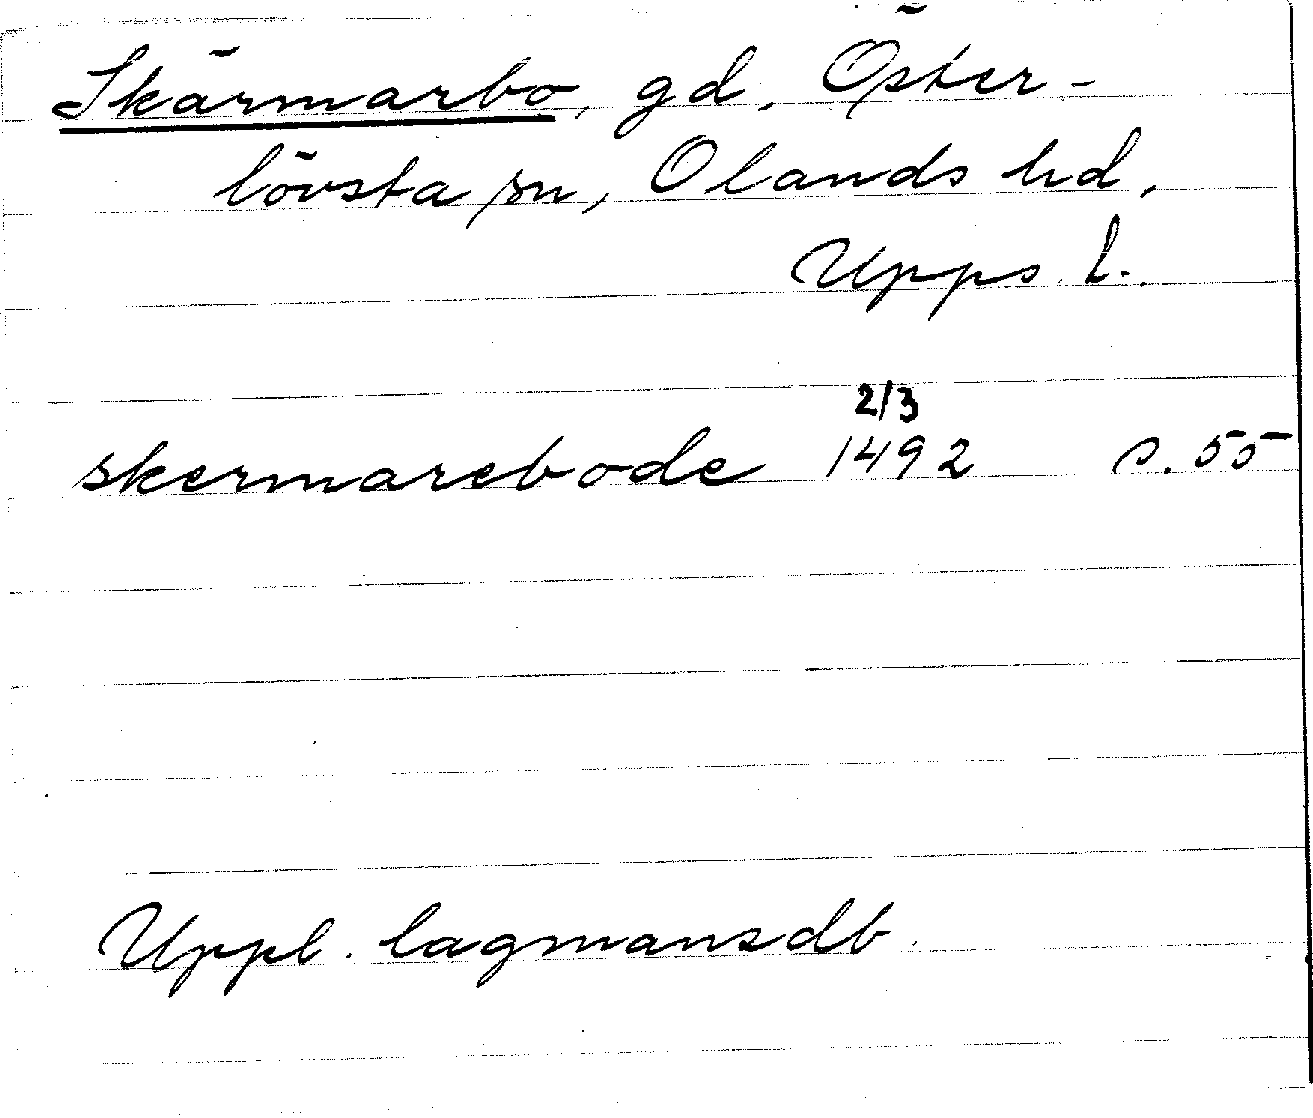 Skärmarbo, gd, Öster-
lövsta sn, Olands hd,
Upps. l.
2/3
skermarebode 1492 s. 55
Uppl. lagmansdb.